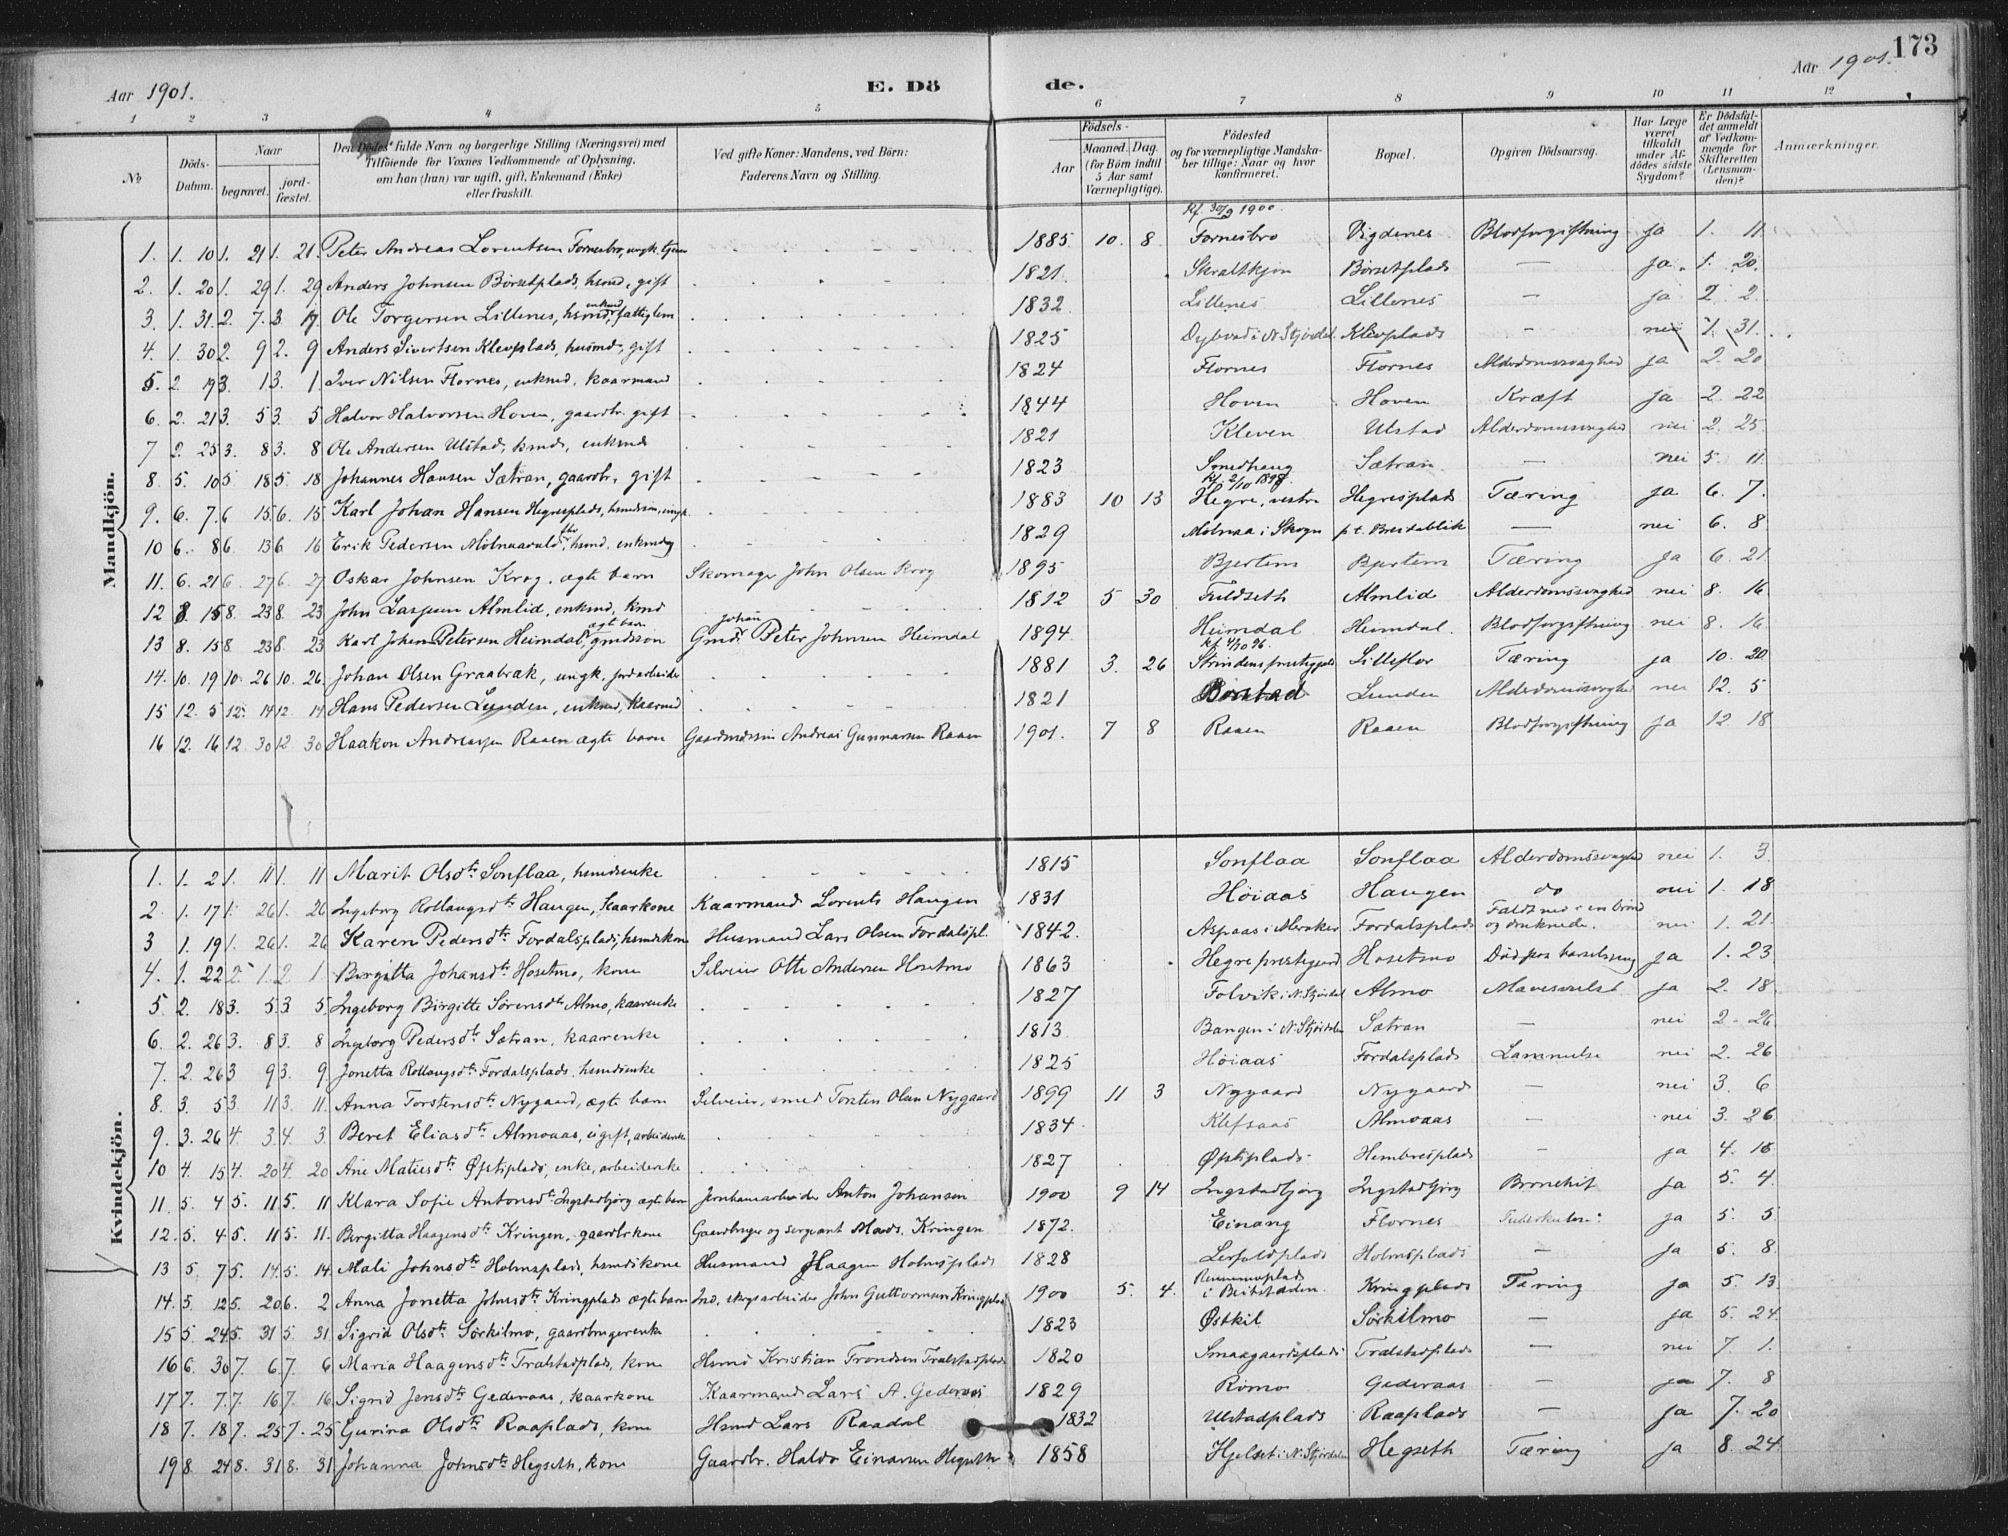 173
Aar 1901. E. Dö de. Aar 1901.
1 2 3 4 5 6 7 8 9 10 11 12
№ Döds-Datum. Naar begravet. jord-fæstet. Den Dödes fulde Navn og borgerlige Stilling (Næringsvei) med Tilföiende for Voxnes Vedkommende af Oplysning, om han (hun) var ugift, gift, Enkemand (Enke) eller fraskilt. Ved gifte Koner: Mandens, ved Börn: Faderens Navn og Stilling. Födsels- Aar Maaned. Dag. (for Börn indtil 5 Aar samt Værnepligtige). Födested og for værnepligtige Mandskaber tillige: Naar og hvor konfirmeret. Bopæl. Opgiven Dödsaarsag. Har Læge været tilkaldt under Afdödes sidste Sygdom? Er Dödsfaldet anmeldt af Vedkommende for Skifteretten (Lensmanden)? Anmærkninger.
Mandkjön.
Kf. 30/9 1900.
1. 1. 10 1. 21 1. 21. Peter Andreas Lorentsen Fornesbro, ungk. 1885 10. 8. Fornesbro Vigdenes Blodforgiftning ja 1. 11
2. 1. 20 1. 29 1. 29 Anders Johnsen Börsetplads, hsmd, gift 1821. Skraltkjön Börsetplads — ja. 1. 20.
3. 1. 31. 2. 7. 3 17. Ole Torgersen Lillenes, hsmd, enkmd fattiglem 1832 Lillenes Lillenes — ja 2 2
4. 1. 30 2. 9 2. 9 Anders Sivertsen Klevplads, husmd, gift 1825 Dybvad i N. Stjördal Klevplads - nei 1. 31.
5. 2. 19 3. 1 3. 1 Iver Nilsen Flornes, enkmd, kaarmand 1824 Flornes Flornes Alderdomssvaghed ja 2. 20
6. 2. 21 3. 5 3. 5 Halvor Halvorsen Hoven, gaardbr. gift 1844 Hoven Hoven Kræft ja 2. 22
7 2. 25 3. 8 3. 8 Ole Andersen Ulstad, kmd, enkmd 1821 Kleven Ulstad Alderdomssvaghed nei 2. 25.
8. 5. 10 5 18 5. 18 Johannes Hansen Sætran, gaardbr, gift 1823 Smedhaug Sætran. — nei 5 11
9. 6. 7. 6 15. 6. 15 Karl Johan Hansen Hegresplads, hsmdssön, ungk 1883 10 13 Kf. 2/10 1898. Hegre, vestre Hegresplads Tæring ja 6. 7.
10 6. 8 6. 13 6 16 Erik Pedersen Mölnaavald, fhv. hsmd. enkmd 1829 Mölnaa i Skogn p.t. Breidablik — nei 6. 8
11. 6. 21 6 27 6. 27 Oskar Johnsen Krog. ægte barn Skomager John Olsen Krog 1895 Bjertem Bjertem Tæring ja 6. 21.
12 8 15 8. 23 8. 23 John Laspesen Almlid, enkmd, kmd 1812 5 30 Fuldseth Almlid Alderdomssvaghed nei 8. 16.
13 8. 15 8. 23 8. 23 Karl Johan Petersen Heimdal, ægt barn gmdssön Gmdr. Peter Johan Johnsen Heimdal 1894. Heimdal Heimdal. Blodforgiftning nei 8. 16
14. 10. 19 10. 26 10. 26. Johan Olsen Graabræk, ungk, jordarbeider 1881 3. 26 Kf. 4/10 96. Strindens præstegjeld Lilleflor Tæring ja 10. 20
15 12. 5 12. 14 12. 14 Hans Pedersen Lunden, enkmd, kaarmd 1821 Borstad Lunden Alderdomssvaghed nei 12. 5
16 12. 16 12. 30 12 30 Haakon Andreassen Raaen ægte barn Gaardmdssön Andreas Gunnarsen Raaen 1901. 7 8 Raaen Raaen Blodforgiftning ja 12. 18
Kvindekjön.
1. 1. 2 1. 11 1. 11 Marit Olsdtr Sonflaa, hsmdsenke 1815 Sonflaa Sonflaa Alderdomssvaghed nei 1. 3.
2 1. 17 1. 26 1. 26 Ingeborg Rollaugsdtr Haugen, kaarkone Kaarmand Lorents Haugen 1831 Höiaas Haugen do nei 1. 18
3 1. 19 1. 26 1. 26 Karen Pedersdtr Fordalsplads, hsmdskone Husmand Lars Olsen Fordalspl. 1842. Aspaas i Meraker Fordalsplads Faldt ned i en brönd og druknede. nei 1. 21
4. 1. 22 2. 1. 2 1 Birgitta Johansdtr Hosetmo, kone Selveier Otto Andersen Hosetmo 1863 Hegre præstegaard Hosetmo Död paa barselseng ja 1. 23
5 2. 18 3. 5 3. 5 Ingeborg Birgitte Sörensdtr Almo, kaarenke 1827 Folvik i N. Stjördal Almo Mavesvulst ja 2. 18
6. 2. 26 3. 8 3. 8 Ingeborg Pedersdtr Sætran, kaarenke 1813. Bangen i N. Stjördalen Sætran — nei 2. 26
7. 2. 26 3 9 3. 9 Jonetta Rollaugsdtr Fordalsplads. hsmdsenke 1825 Höiaas Fordalsplads Lammelse nei 2. 26
8. 3. 5 3. 11 3. 11. Anna Torstensdtr Nygaard, ægte barn Selveier, smed Torsten Olsen Nygaard 1899 11 3 Nygaard Nygaard — nei 3. 6
9. 3. 26 4. 3 4. 3 Beret Eliasdtr Almoaas, ugift, 1834. Klefsaas Almoaas - nei 3. 26
10 4. 15 4. 20 4. 20 Ane Matiesdtr Östiplads, enke, arbeiderske 1827 Östiplads Hembresplads — ja 4. 16
11. 5. 4 5. 11 5. 11 Klara Sofie Antonsdtr Ingstadbjörg ægte barn Jernbanearbeider Anton Johansen 1900 9 14 Ingstadbjörg Ingstadbjörg Bronchit ja 5. 4.
12. 5. 4 5. 11 5. 11. Birgitta Haagensdtr Kringen, gaardbrkone Gaardbruger og sergeant Mads. Kringen 1872. Einang Flornes Tuberkulose ja 5. 5
13 5. 7 5. 14 5. 14. Mali Johnsdtr Holmsplads, hsmdskone Husmand Haagen Holmsplads 1828 Lerfaldplads Holmsplads — ja 5. 8.
14. 5. 12 5. 20 6. 2 Anna Jonetta Johnsdtr Kringplads ægte barn Ind. skogsarbeider John Guttormsen Kringplads 1900 5. 4. i Beitstaden. Kringplads Tæring ja 5. 13
15 5. 24 5. 31 5. 31 Sigrid Olsdtr Sörkilmo, gaardbrugerenke 1823 Östkil Sörkilmo — ja 5. 24
16 6. 30 7. 6 7. 6 Maria Haagensdtr Tralstadplads, kone Hsmd Kristian Trondsen Tralstadplads 1820 Smaagaardsplads Tralstadplads — nei 7. 1.
17 7. 7. 7. 16 7. 16 Sigrid Jensdtr Gederaas, kaarkone Kaarmand Lars A. Gederaas 1829 Römo Gederaas — ja 7. 8
18 7. 18 7. 25 7. 25 Gurina Olsdtr Raaplads, kone Hsmd Lars Raadal 1832 Ulstadplads Raaplads — ja 7. 20
19 8. 24 8. 31 8. 31 Johanna Johnsdtr Hegseth, kone Gaardbr. Haldo Einarsen Hegseth 1858 Hjelset i N. Stjördalen Hegseth Tæring ja 8. 24